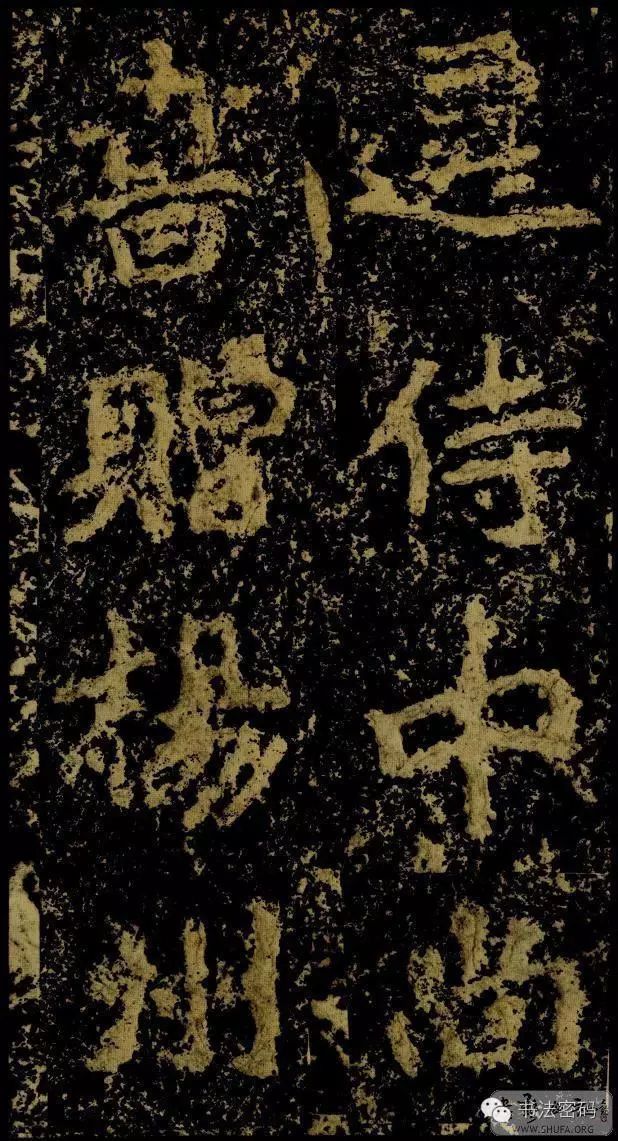 侍中尚
書贈楊州
书法密码
WWW.SHUFA.ORG